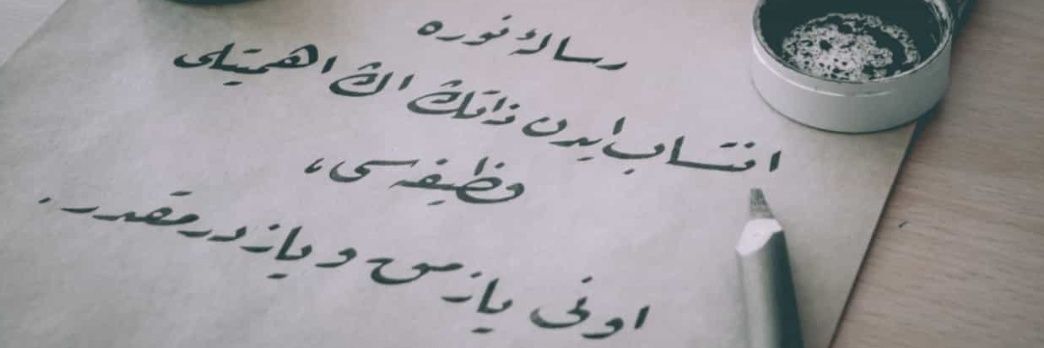 رسالهٔ نوره
انتساب ایدن ذاتڭ اڭ اهمیتلی
وظیفه‌سی،
اونی یازمق و یازدرمقدر.